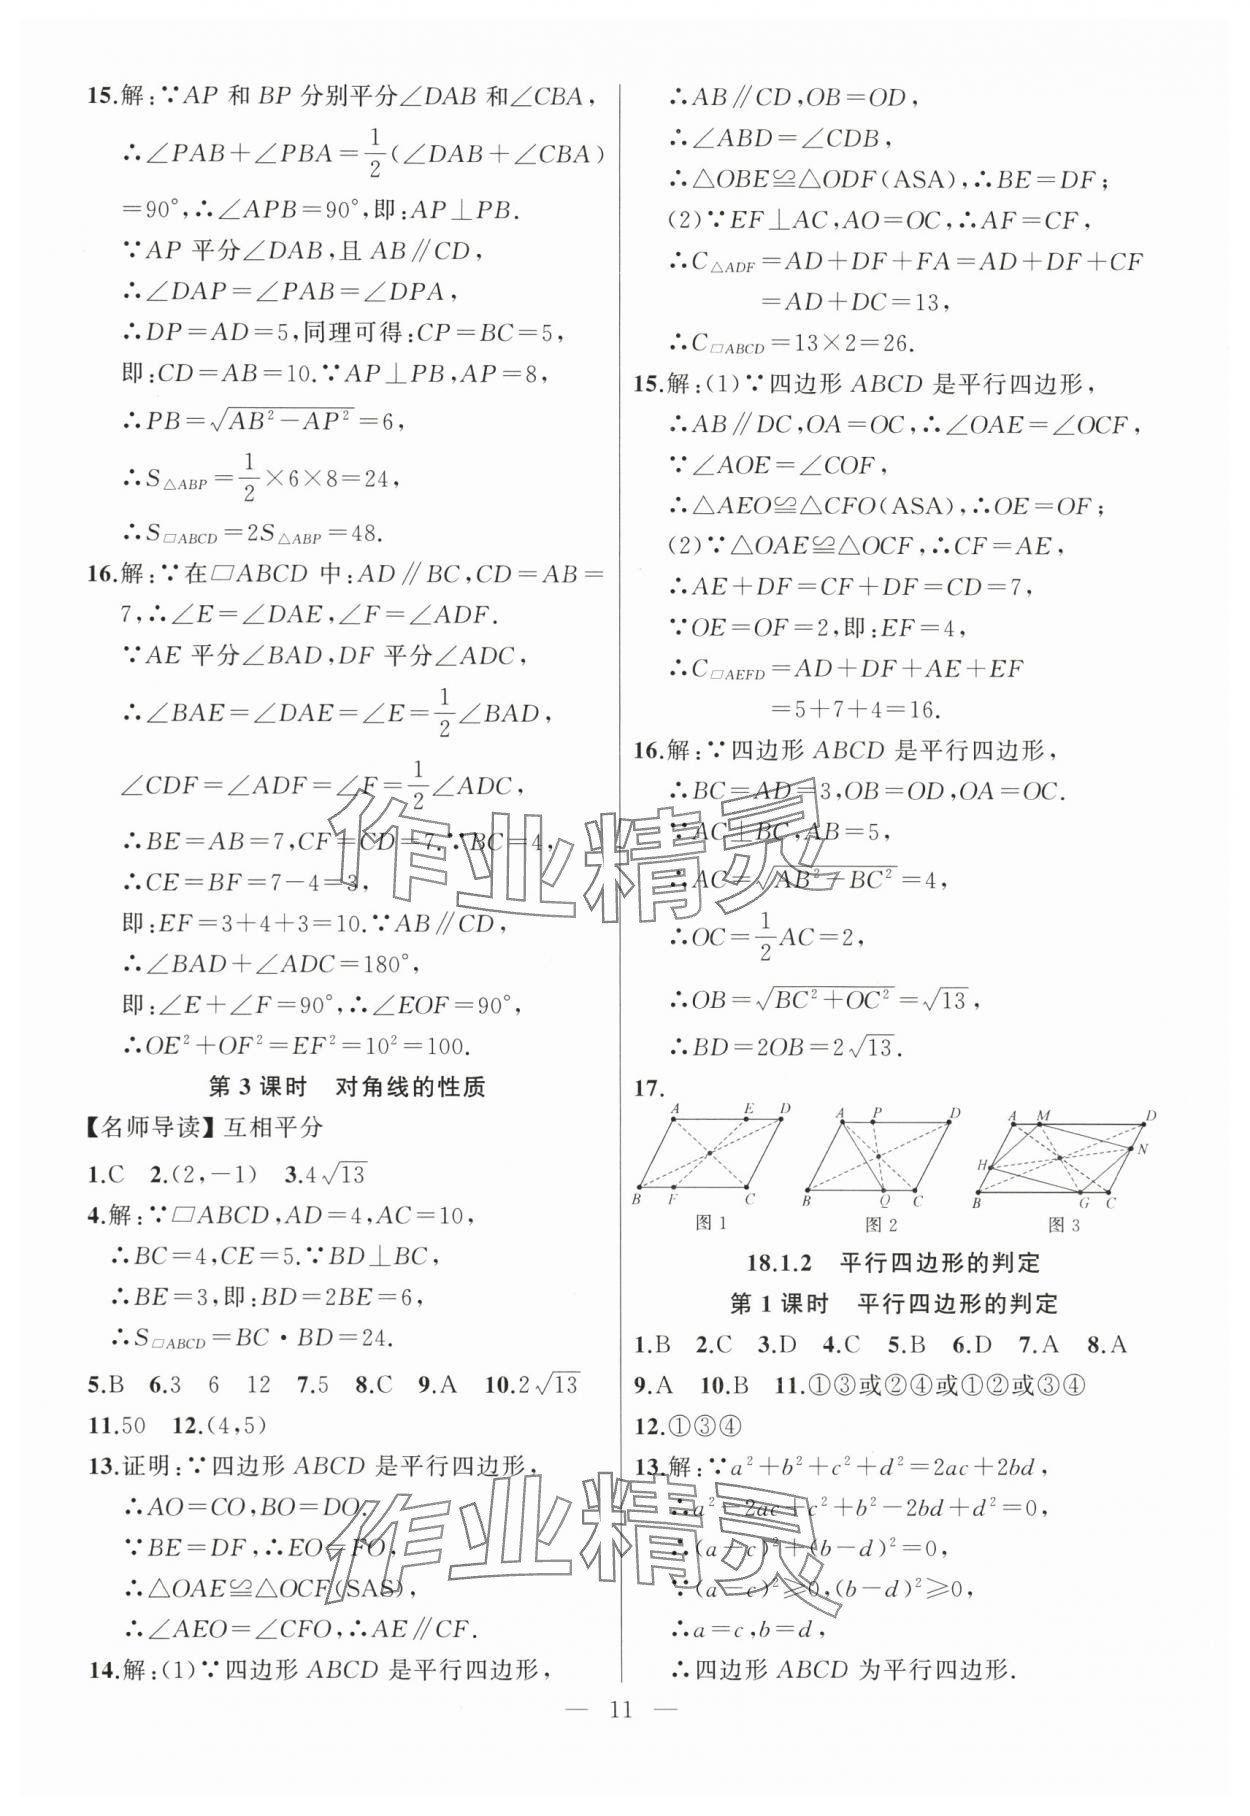 15.解:∵AP 和 BP 分别平分∠DAB 和∠CBA,
∴∠PAB+∠PBA=1/2(∠DAB+∠CBA)
=90°,∴∠APB=90°,即:AP⊥PB.
∵AP 平分∠DAB,且 AB∥CD,
∴∠DAP=∠PAB=∠DPA,
∴DP=AD=5,同理可得:CP=BC=5,
即:CD=AB=10.∵AP⊥PB,AP=8,
∴PB=√(AB²-AP²)=6,
∴S△ABP=1/2×6×8=24,
∴S□ABCD=2S△ABP=48.
16.解:∵在□ABCD 中:AD∥BC,CD=AB=
7,∴∠E=∠DAE,∠F=∠ADF.
∵AE 平分∠BAD,DF 平分∠ADC,
∴∠BAE=∠DAE=∠E=1/2∠BAD,
∠CDF=∠ADF=∠F=1/2∠ADC,
∴BE=AB=7,CF=CD=7.∵BC=4,
∴CE=BF=7-4=3,
即:EF=3+4+3=10.∵AB∥CD,
∴∠BAD+∠ADC=180°,
即:∠E+∠F=90°,∴∠EOF=90°,
∴OE²+OF²=EF²=10²=100.
第 3 课时 对角线的性质
【名师导读】互相平分
1.C 2.(2,-1) 3.4√13
4.解:∵□ABCD,AD=4,AC=10,
∴BC=4,CE=5.∵BD⊥BC,
∴BE=3,即:BD=2BE=6,
∴S□ABCD=BC·BD=24.
5.B 6.3 6 12 7.5 8.C 9.A 10.2√13
11.50 12.(4,5)
13.证明:∵四边形 ABCD 是平行四边形,
∴AO=CO,BO=DO.
∵BE=DF,∴EO=FO,
∴△OAE≌△OCF(SAS),
∴∠AEO=∠CFO,∴AE∥CF.
14.解:(1)∵四边形 ABCD 是平行四边形,
∴AB∥CD,OB=OD,
∴∠ABD=∠CDB,
∴△OBE≌△ODF(ASA),∴BE=DF;
(2)∵EF⊥AC,AO=OC,∴AF=CF,
∴C△ADF=AD+DF+FA=AD+DF+CF
=AD+DC=13,
∴C□ABCD=13×2=26.
15.解:(1)∵四边形 ABCD 是平行四边形,
∴AB∥DC,OA=OC,∴∠OAE=∠OCF,
∵∠AOE=∠COF,
∴△AEO≌△CFO(ASA),∴OE=OF;
(2)∵△OAE≌△OCF,∴CF=AE,
∴AE+DF=CF+DF=CD=7,
∵OE=OF=2,即:EF=4,
∴C□AEFD=AD+DF+AE+EF
=5+7+4=16.
16.解:∵四边形 ABCD 是平行四边形,
∴BC=AD=3,OB=OD,OA=OC.
∵AC⊥BC,AB=5,
∴AC=√(AB²-BC²)=4,
∴OC=1/2AC=2,
∴OB=√(BC²+OC²)=√13,
∴BD=2OB=2√13.
17.
A E D A P D A M D
N
H
B F C B Q C B G C
图 1 图 2 图 3
18.1.2 平行四边形的判定
第 1 课时 平行四边形的判定
1.B 2.C 3.D 4.C 5.B 6.D 7.A 8.A
9.A 10.B 11.①③或②④或①②或③④
12.①③④
13.解:∵a²+b²+c²+d²=2ac+2bd,
∴a²-2ac+c²+b²-2bd+d²=0,
∴(a-c)²+(b-d)²=0,
∵(a-c)²≥0,(b-d)²≥0,
∴a=c,b=d,
∴四边形 ABCD 为平行四边形.
— 11 —
作业精灵
作业精灵